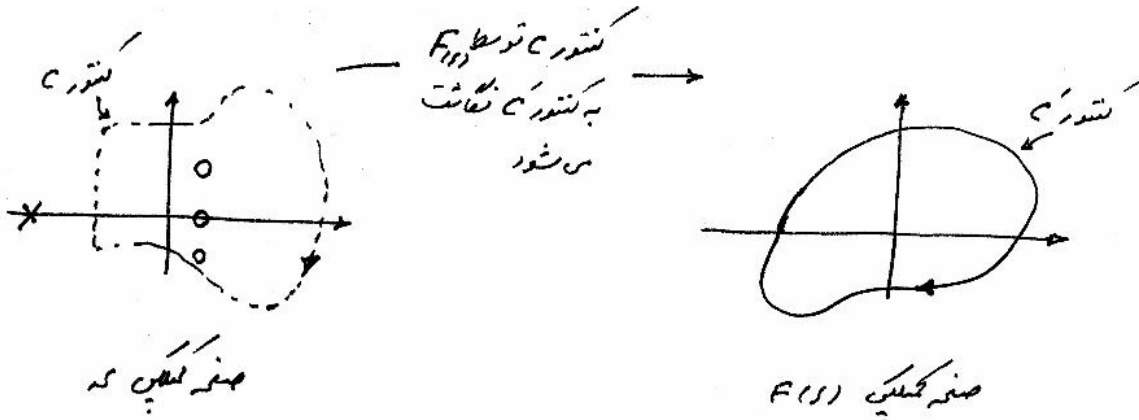 کنتور C
کنتور C توسط F(s)
به کنتور C' نگاشت
می‌شود
کنتور C'
صفحه کمپلکس s
صفحه کمپلکس F(s)